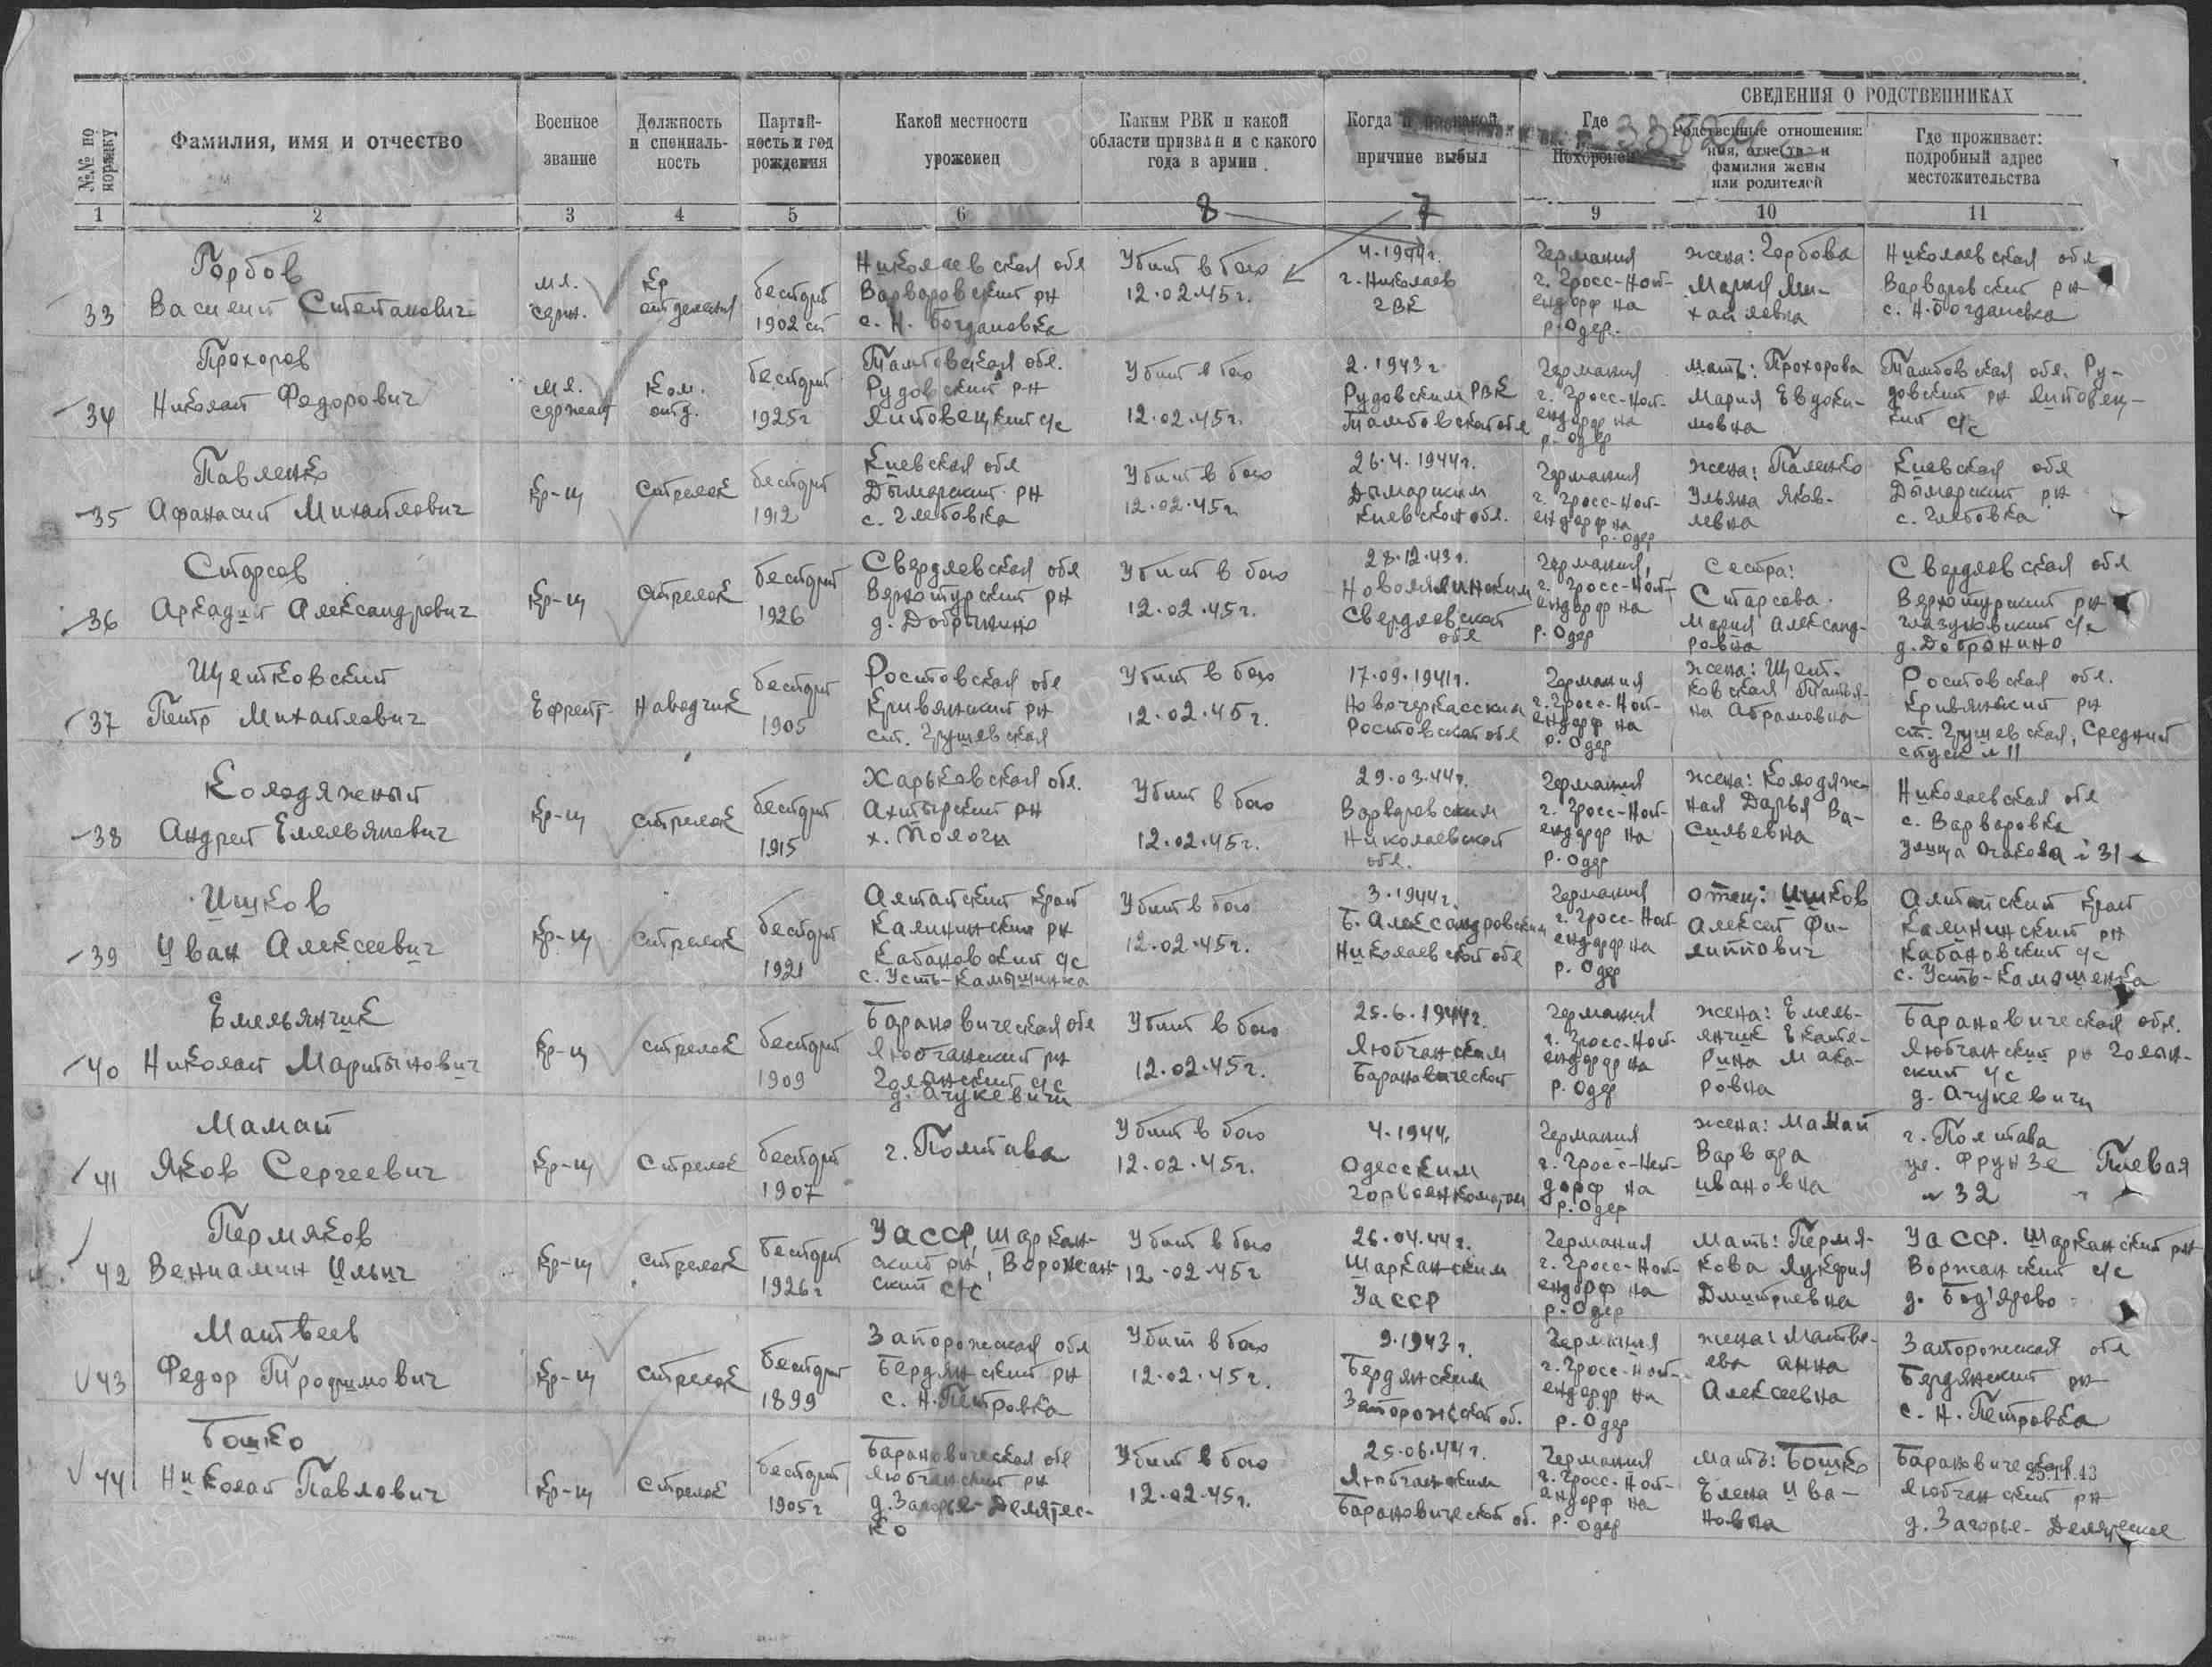 СВЕДЕНИЯ О РОДСТВЕННИКАХ
№№ по порядку
Фамилия, имя и отчество
Военное звание
Должность и специаль-
ность
Партий-
ность и год
рождения
Какой местности
уроженец
Каким РВК и какой
области призван и с какого
года в армии
Когда и по какой
причине выбыл
Где
похоронен
Родственные отношения:
имя, отчество и
фамилия жены
или родителей
Где проживает:
подробный адрес
местожительства
1 2 3 4 5 6 8 7 9 10 11
33
Горбов
Василий Степанович
мл.
серж.
Кр
отделения
беспарт
1902
Николаевская обл
Варваровский рн
с. Н. Богдановка
Убит в бою
12.02.45г.
4.1944г.
г. Николаев
ГВК
Германия
г. Гросс-Ной-
ендорф на
р. Одер.
жена: Горбова
Мария Ми-
хайловна
Николаевская обл
Варваровский рн
с. Н. Богдановка
34
Прохоров
Николай Федорович
мл.
сержант
Ком.
отд.
беспарт
1925г
Тамбовская обл.
Рудовский рн
Липовецкий с/с
Убит в бою
12.02.45г.
2.1943г
Рудовским РВК
Тамбовской обл
Германия
г. Гросс-Ной-
ендорф на
р. Одер
мать: Прохорова
Мария Евдоки-
мовна
Тамбовская обл. Ру-
довский рн Липовец-
кий с/с
35
Павленко
Афанасий Михайлович
Кр-ц
Стрелок
беспарт
1912
Киевская обл
Дымарский рн
с. Глебовка
Убит в бою
12.02.45г.
26.4.1944г.
Дымарским
Киевской обл.
Германия
г. Гросс-Ной-
ендорф на
р. Одер
жена: Паленко
Ульяна Яков-
левна
Киевская обл
Дымарский рн
с. Глебовка
36
Старсев
Аркадий Александрович
Кр-ц
Стрелок
беспарт
1926
Свердлевская обл
Верхотурский рн
д. Добрынино
Убит в бою
12.02.45г.
28.12.43г.
Новолялинским
Свердлевской
обл
Германия,
г. Гросс-Ной-
ендорф на
р. Одер
Сестра:
Старсева
Мария Александ-
ровна
Свердловская обл
Верхотурский рн
Глазуновский с/с
д. Добрянино
37
Щепковский
Петр Михайлович
Ефрейт.
Наводчик
беспарт
1905
Ростовская обл
Кривянский рн
ст. Грушевская
Убит в бою
12.02.45г.
17.09.1941г.
Новочеркасским
Ростовской обл
Германия
г. Гросс-Ной-
ендорф на
р. Одер
жена: Щеп-
ковская Татья-
на Абрамовна
Ростовская обл.
Кривянский рн
ст. Грушевская, Средний
спуск №11
38
Колодяжный
Андрей Емельянович
Кр-ц
Стрелок
беспарт
1915
Харьковская обл.
Ахтырский рн
х. Пологи
Убит в бою
12.02.45г.
29.03.44г.
Варваровским
Николаевской
обл.
Германия
г. Гросс-Ной-
ендорф на
р. Одер
жена: Колодяж-
ная Дарья Ва-
сильевна
Николаевская обл
с. Варваровка
улица Очакова 31
39
Ишков
Иван Алексеевич
Кр-ц
Стрелок
беспарт
1921
Алтайский край
Калининский рн
Кабановский с/с
с. Усть-Камышинка
Убит в бою
12.02.45г.
3.1944г.
Б. Александровским
Николаевской обл
Германия
г. Гросс-Ной
ендорф на
р. Одер
отец: Ишков
Алексей Фи-
липпович
Алтайский край
Калининский рн
Кабановский с/с
с. Усть-Камышенка
40
Емельянчик
Николай Мартынович
Кр-ц
стрелок
беспарт
1909
Барановическая обл
Любчанский рн
Голынский с/с
д. Ачукевичи
Убит в бою
12.02.45г.
25.6.1944г.
Любчанским
Барановической
Германия
г. Гросс-Ной-
ендорф на
р. Одер
жена: Емель-
янчик Екате-
рина Мака-
ровна
Барановическая обл.
Любчанский рн Голын-
ский с/с
д. Ачукевичи
41
Мамай
Яков Сергеевич
Кр-ц
Стрелок
беспарт
1907
г. Полтава
Убит в бою
12.02.45г.
4.1944.
Одесским
Горвоенкоматом
Германия
г. Гросс-Ной-
дорф на
р. Одер
жена: Мамай
Варвара
Ивановна
г. Полтава
ул. Фрунзе
№ 32
42
Пермяков
Вениамин Ильич
Кр-ц
стрелок
беспарт
1926г
УАССР, Шаркан-
ский рн, Воронжан-
ский с/с
Убит в бою
12.02.45г
26.04.44г.
Шарканским
УАССР
Германия
г. Гросс-Ной-
ендорф на
р. Одер
Мать: Пермя-
кова Лукерия
Дмитриевна
УАССР. Шарканский рн
Воржанский с/с
д. Бод'ярово
43
Матвеев
Федор Трофимович
Кр-ц
Стрелок
беспарт
1899
Запорожская обл
Бердянский рн
с. Н. Петровка
Убит в бою
12.02.45г.
9.1943г.
Бердянским
Запорожской об.
Германия
г. Гросс-Ной-
ендорф на
р. Одер
жена: Матве-
ева Анна
Алексеевна
Запорожская обл
Бердянский рн
с. Н. Петровка
44
Бошко
Николай Павлович
Кр-ц
Стрелок
беспарт
1905г
Барановическая обл
Любчанский рн
д. Загорье-Делятес-
ко
Убит в бою
12.02.45г.
25.06.44г.
Любчанским
Барановической об.
Германия
г. Гросс-Ной-
ендорф на
р. Одер
Мать: Бошко
Елена Ива-
новна
Барановическая
25.11.43
Любчанский рн
д. Загорье-